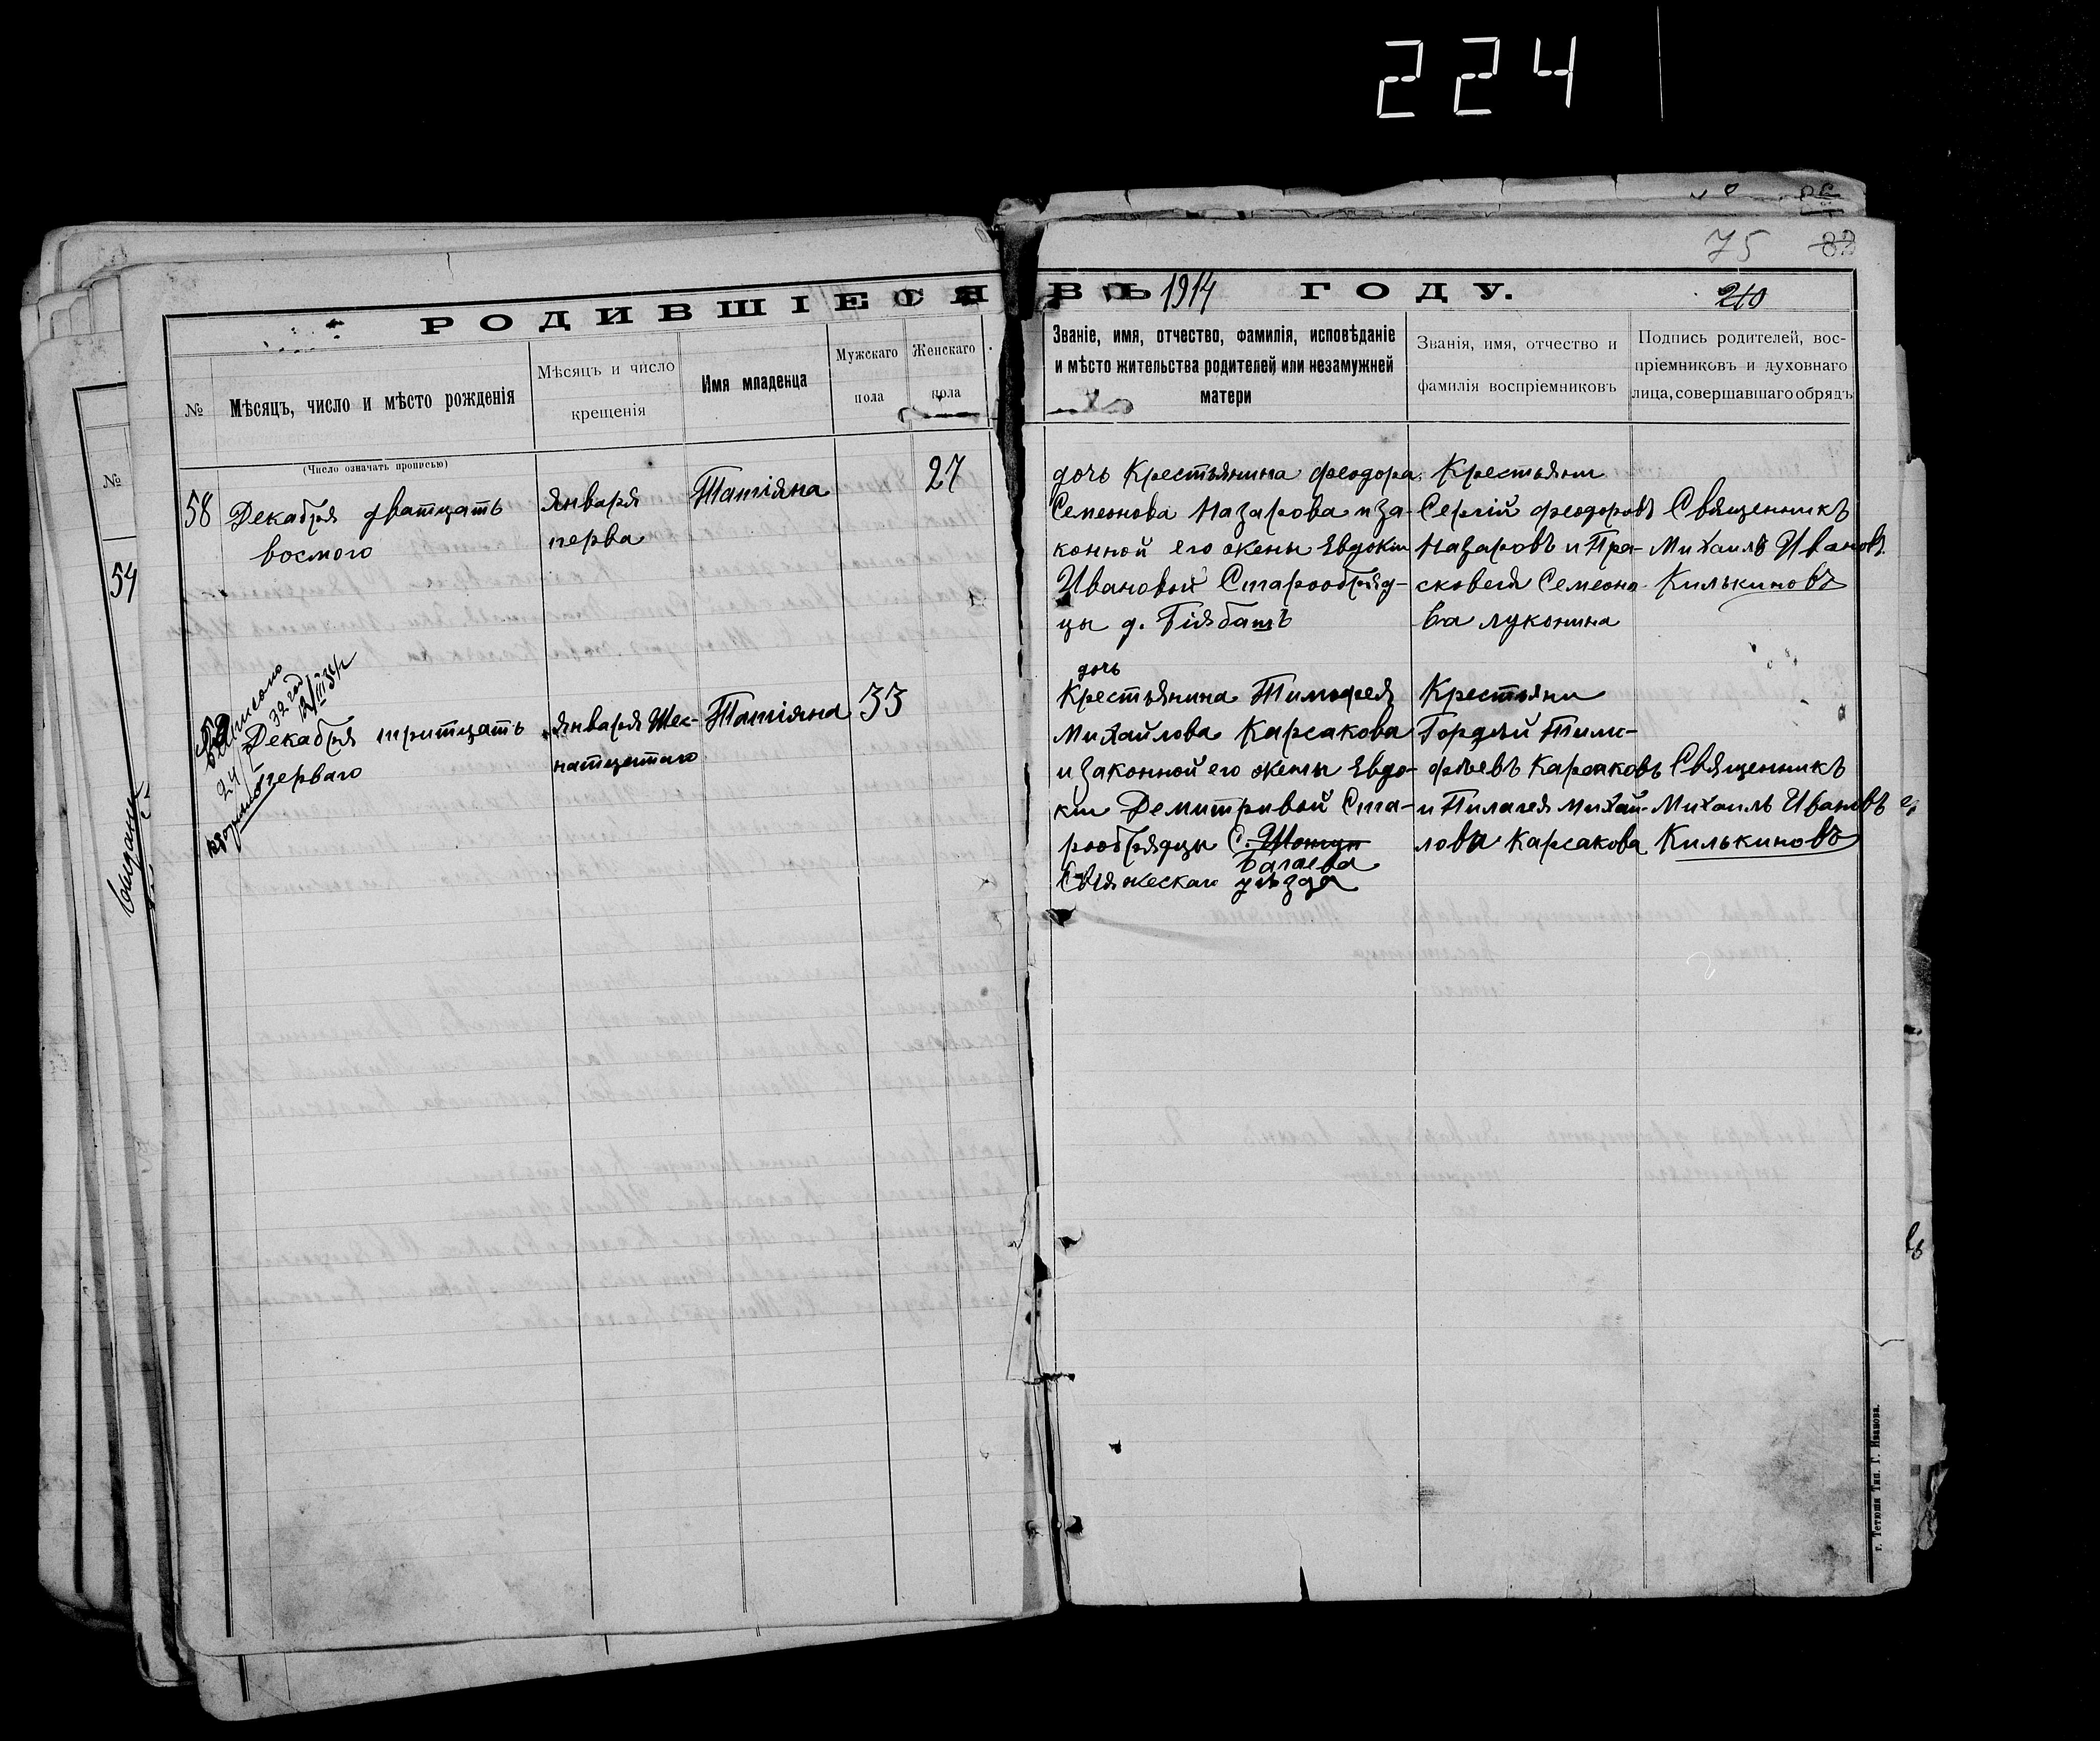 224
75 82
РОДИВШІЕСЯ ВЪ 1914 ГОДУ.
210
№
Мѣсяцъ, число и мѣсто рожденія
Мѣсяцъ и число
крещенія
Имя младенца
Мужскаго
пола
Женскаго
пола
Званіе, имя, отчество, фамилія, исповѣданіе
и мѣсто жительства родителей или незамужней
матери
Званія, имя, отчество и
фамилія воспріемниковъ
Подпись родителей, вос-
пріемниковъ и духовнаго
лица, совершавшаго обрядъ
(Число означать прописью)
№
54
58
Декабря дватцать
восмого
января
перва
Татіяна
27
дочь Крестьянина Феодора
Семеонова Назарова и за-
конной его жены Евдокіи
Ивановой Старообряд-
цы д.
Крестьяни
Сергій Феодоровъ
Назаровъ и Пра-
сковея Семеоно-
ва Луконина
Священникъ
Михаилъ Ивановъ
Килькиновъ
59
Декабря тритцать
перваго
января Шес-
натцетаго
Татіяна
33
дочь
Крестьянина Тимофея
Михайлова Карсакова
и законной его жены Евдо-
кіи Демитривой Ста-
рообрядцы С.
Багаева
Свіяжескаго уѣзда
Крестьяни
Гордѣй Тимо-
фѣевъ Карсаковъ
и Пилагея Михай-
лова Карсакова
Священникъ
Михаилъ Ивановъ
Килькиновъ
г. Тетюши Тип. Г. Иванова.